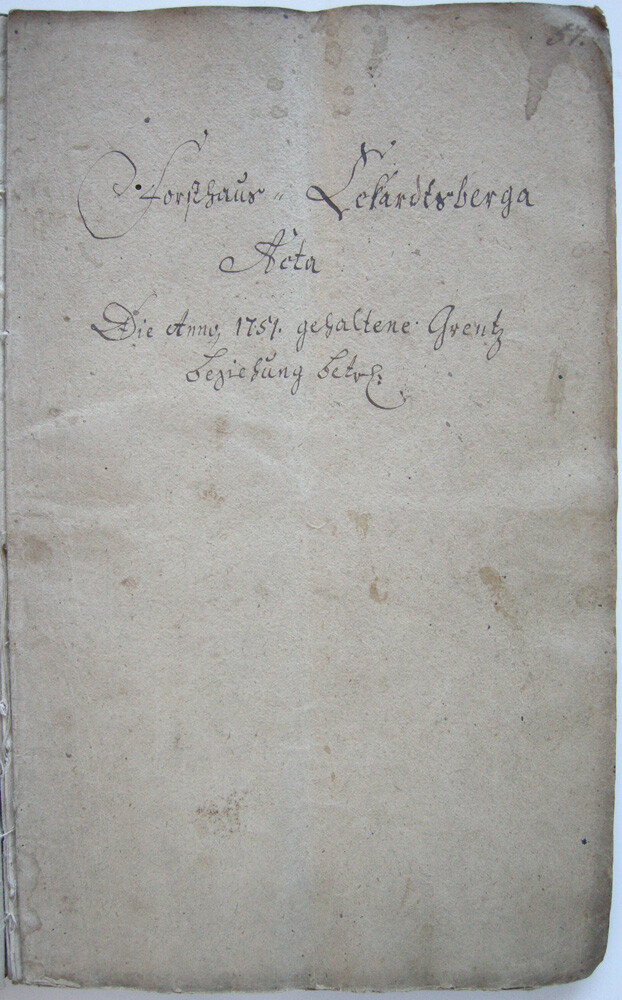 57.
Forsthaus = Eckardtsberga
Acta
Die Anno, 1757. gehaltene Grentz
beziehung betrh: